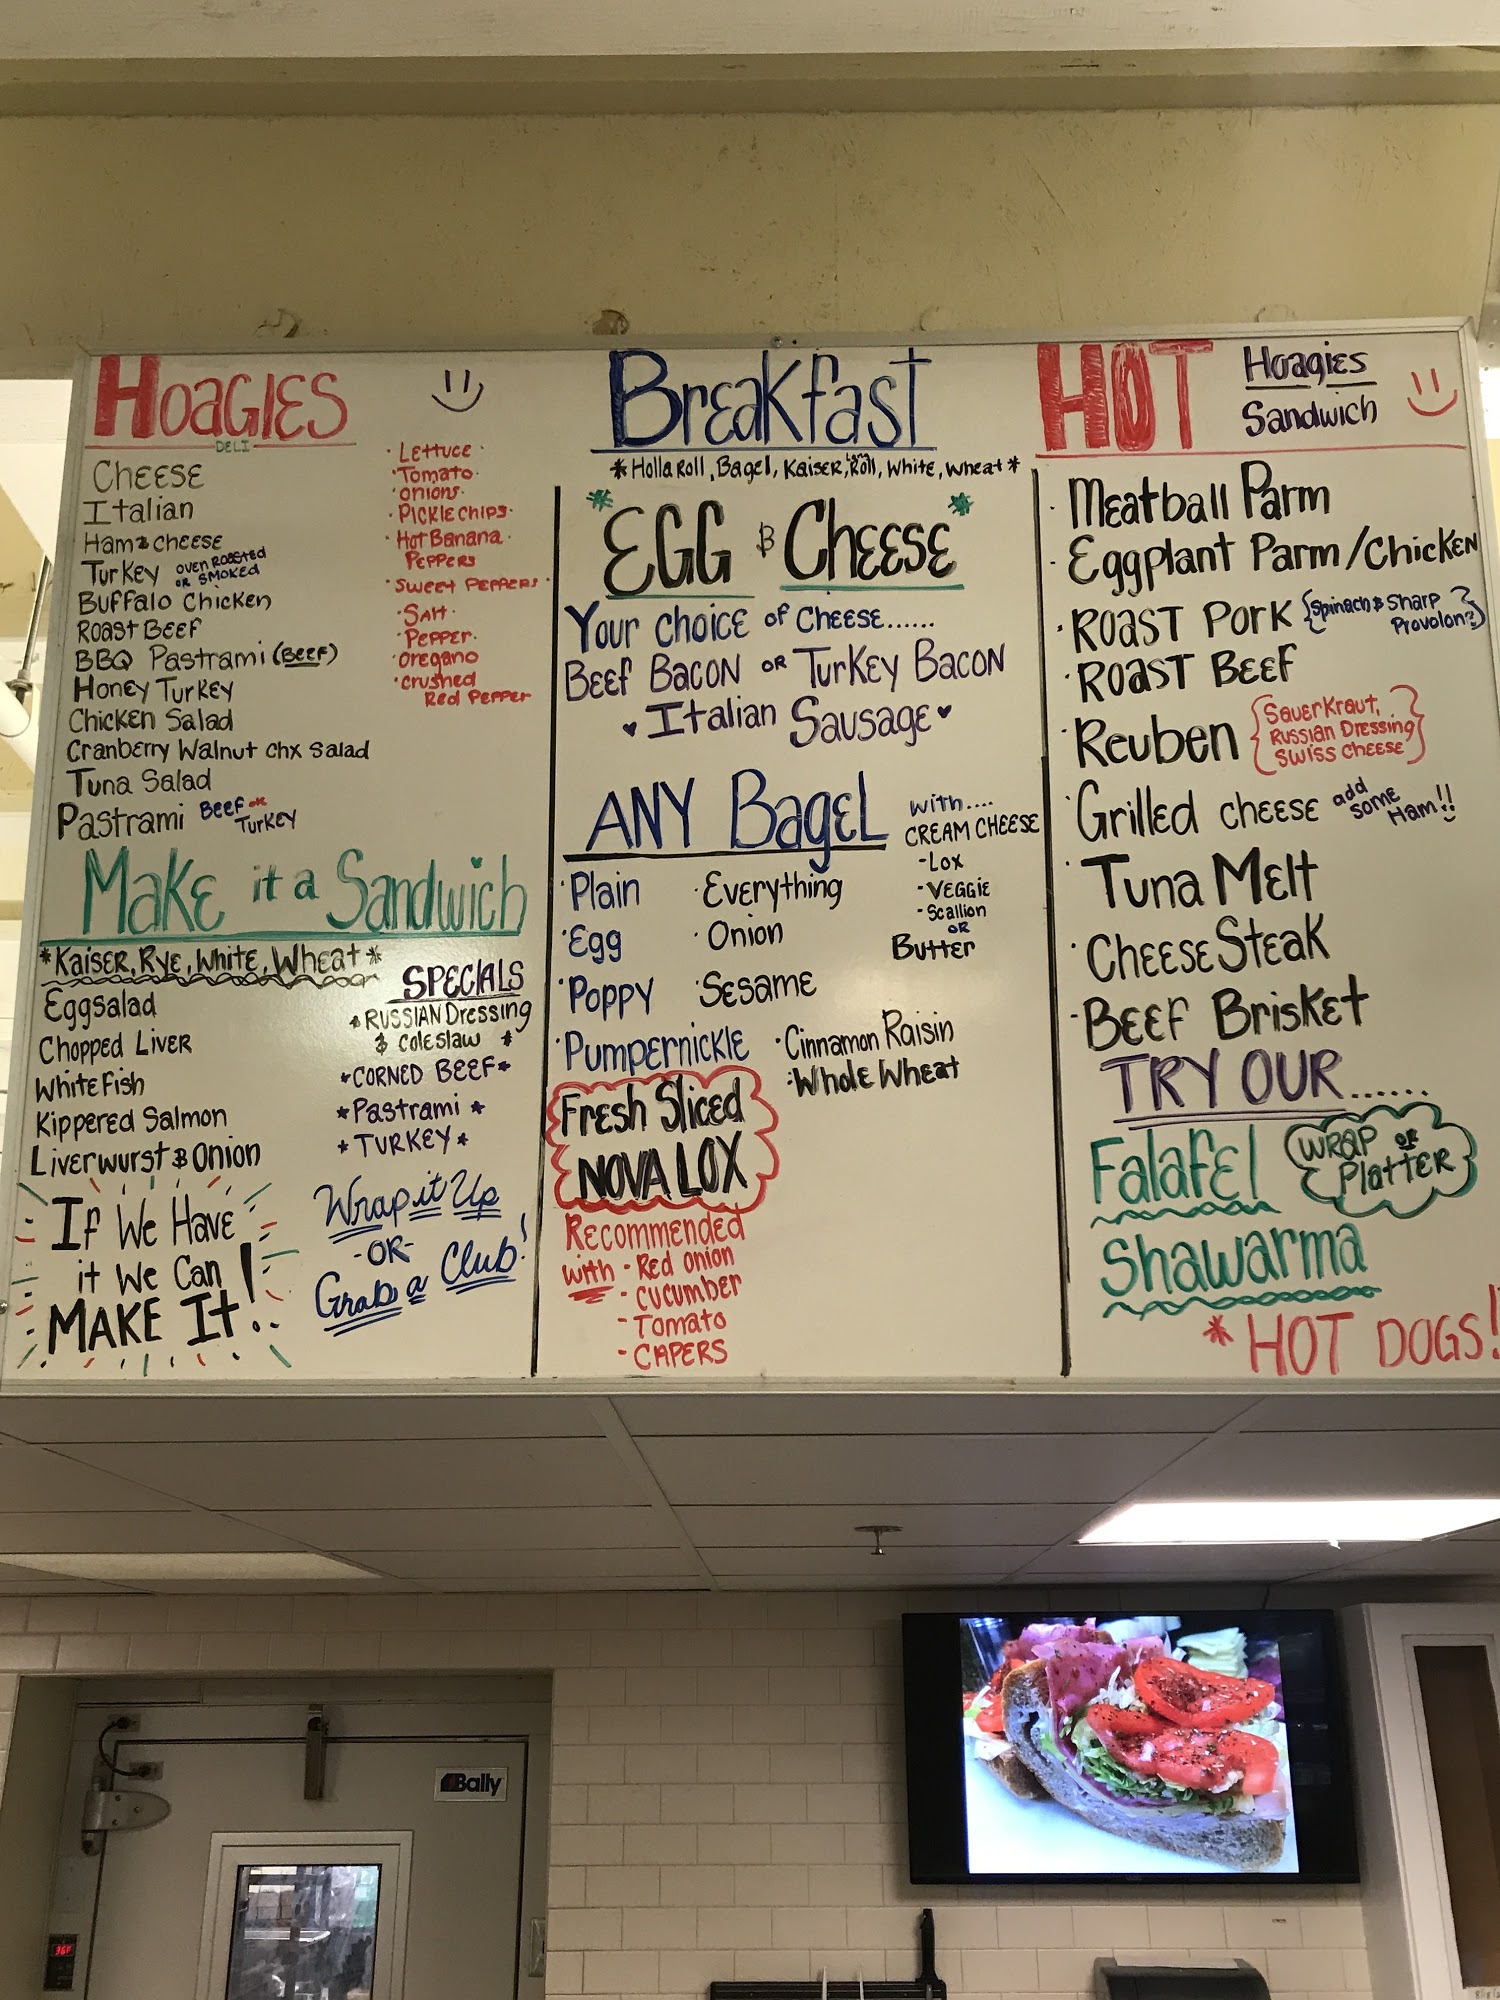 HOAGIES
DELI
CHEESE
Italian
Ham & CHEESE
Turkey OVEN ROASTED
OR SMOKED
Buffalo Chicken
Roast Beef
BBQ Pastrami (BEEF)
Honey Turkey
Chicken Salad
Cranberry Walnut chx Salad
Tuna Salad
Pastrami Beef or
Turkey
· Lettuce ·
· Tomato ·
· onions ·
· PICKLE CHIPS ·
· Hot Banana ·
PEPPERS
· Sweet PEPPERS ·
· SALT ·
· PEPPER ·
· oregano
· crushed
Red PEPPER
Make it a Sandwich
*Kaiser, Rye, White, Wheat*
Eggsalad
Chopped Liver
White Fish
Kippered Salmon
Liverwurst & Onion
SPECIALS
* RUSSIAN Dressing
& coleslaw *
*CORNED BEEF*
*Pastrami *
* TURKEY *
If We Have
it We Can
MAKE It!..
Wrap it Up
-OR-
Grab a Club!
Breakfast
*Holla Roll, Bagel, Kaiser, Roll, White, Wheat*
*EGG & CHEESE*
Your choice of cheese......
Beef Bacon or Turkey Bacon
Italian Sausage
ANY Bagel
with....
CREAM CHEESE
-Lox
-VEGGIE
-Scallion
OR
Butter
· Plain
· Egg
· Poppy
· Pumpernickle
· Everything
· Onion
· Sesame
· Cinnamon Raisin
· Whole Wheat
Fresh Sliced
NOVA LOX
Recommended
with · Red onion
- cucumber
- Tomato
- CAPERS
HOT Hoagies
Sandwich
· Meatball Parm
· Eggplant Parm/Chicken
· Roast Pork {Spinach & Sharp
Provolone?}
· Roast Beef
· Reuben {Sauerkraut,
Russian Dressing
Swiss Cheese}
· Grilled cheese add
some
Ham!!
· Tuna Melt
· Cheese Steak
- Beef Brisket
TRY OUR......
Falafel WRAP or
Platter
Shawarma
* HOT DOGS!
Bally